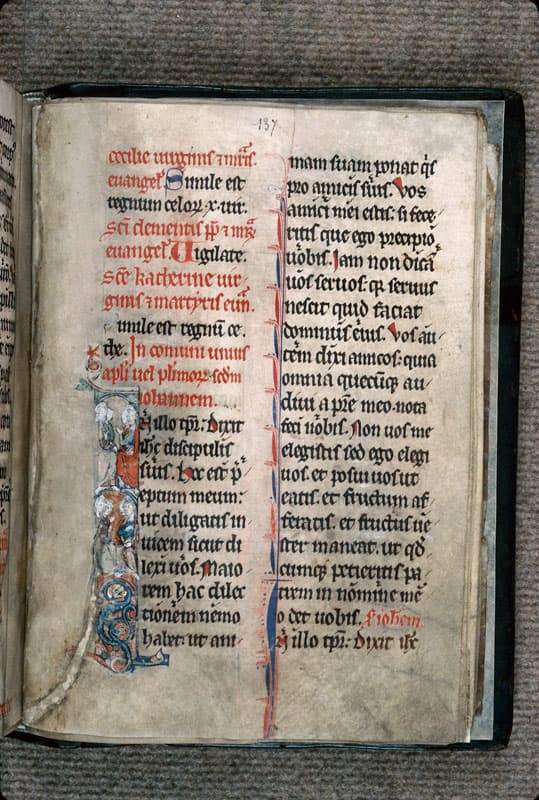 137
cecilie uirginis ⁊ mr̄is.
euangeł. Simile est
regnum celoꝝ. x. uir.
Sc̄i clementis pp̄ ⁊ mr̄
euangeł. Uigilate.
Sc̄e katherine uir
ginis ⁊ martyris eun̄.
imile est regnū ce.
the. In comuni unius
apłi uel plimoꝝ. scdm
iohannem.
N illo tp̄r: dixit
ih̄c discipulis
suis. Hoc est p̄
ceptum meum:
ut diligatis in
uicem sicut di
lexi uos. Maio
rem hac dilec
tionem nemo
habet: ut ani
mam suam ponat q̄s
pro amicis suis. Vos
amici mei estis. si fece
ritis que ego precipio
uobis. Iam non dicā
uos seruos: qꝫ seruus
nescit quid faciat
dominus eius. Vos au
tem dixi amicos: quia
omnia quecūqꝫ au
diui a pr̄e meo. nota
feci uobis. Non uos me
elegistis sed ego elegi
uos. et posui uos ut
eatis. et fructum af
feratis. et fructus ue
ster maneat. ut qd̄
cumqꝫ petieritis pa
trem in nomine me
o det uobis. S. iohem.
N illo tp̄r: dixit ih̄c